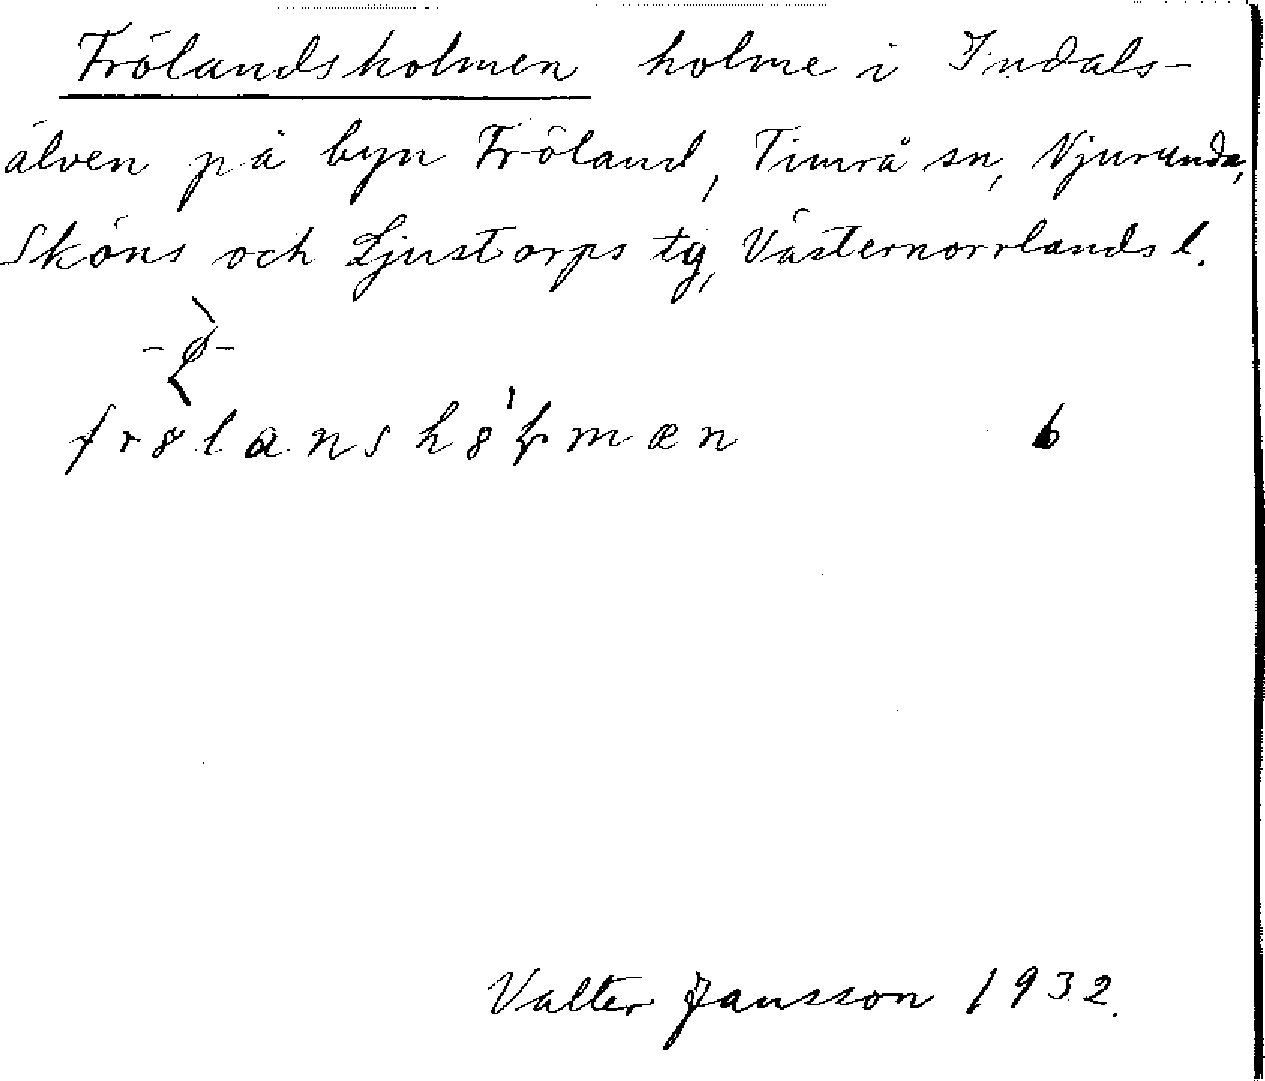 Frölandsholmen holme i Indals-
älven på byn Fröland, Timrå sn, Njurunda,
Sköns och Ljustorps tg, Västernorrlands l.
-ø-
frølanshølmæn b
Valter Jansson 1932.